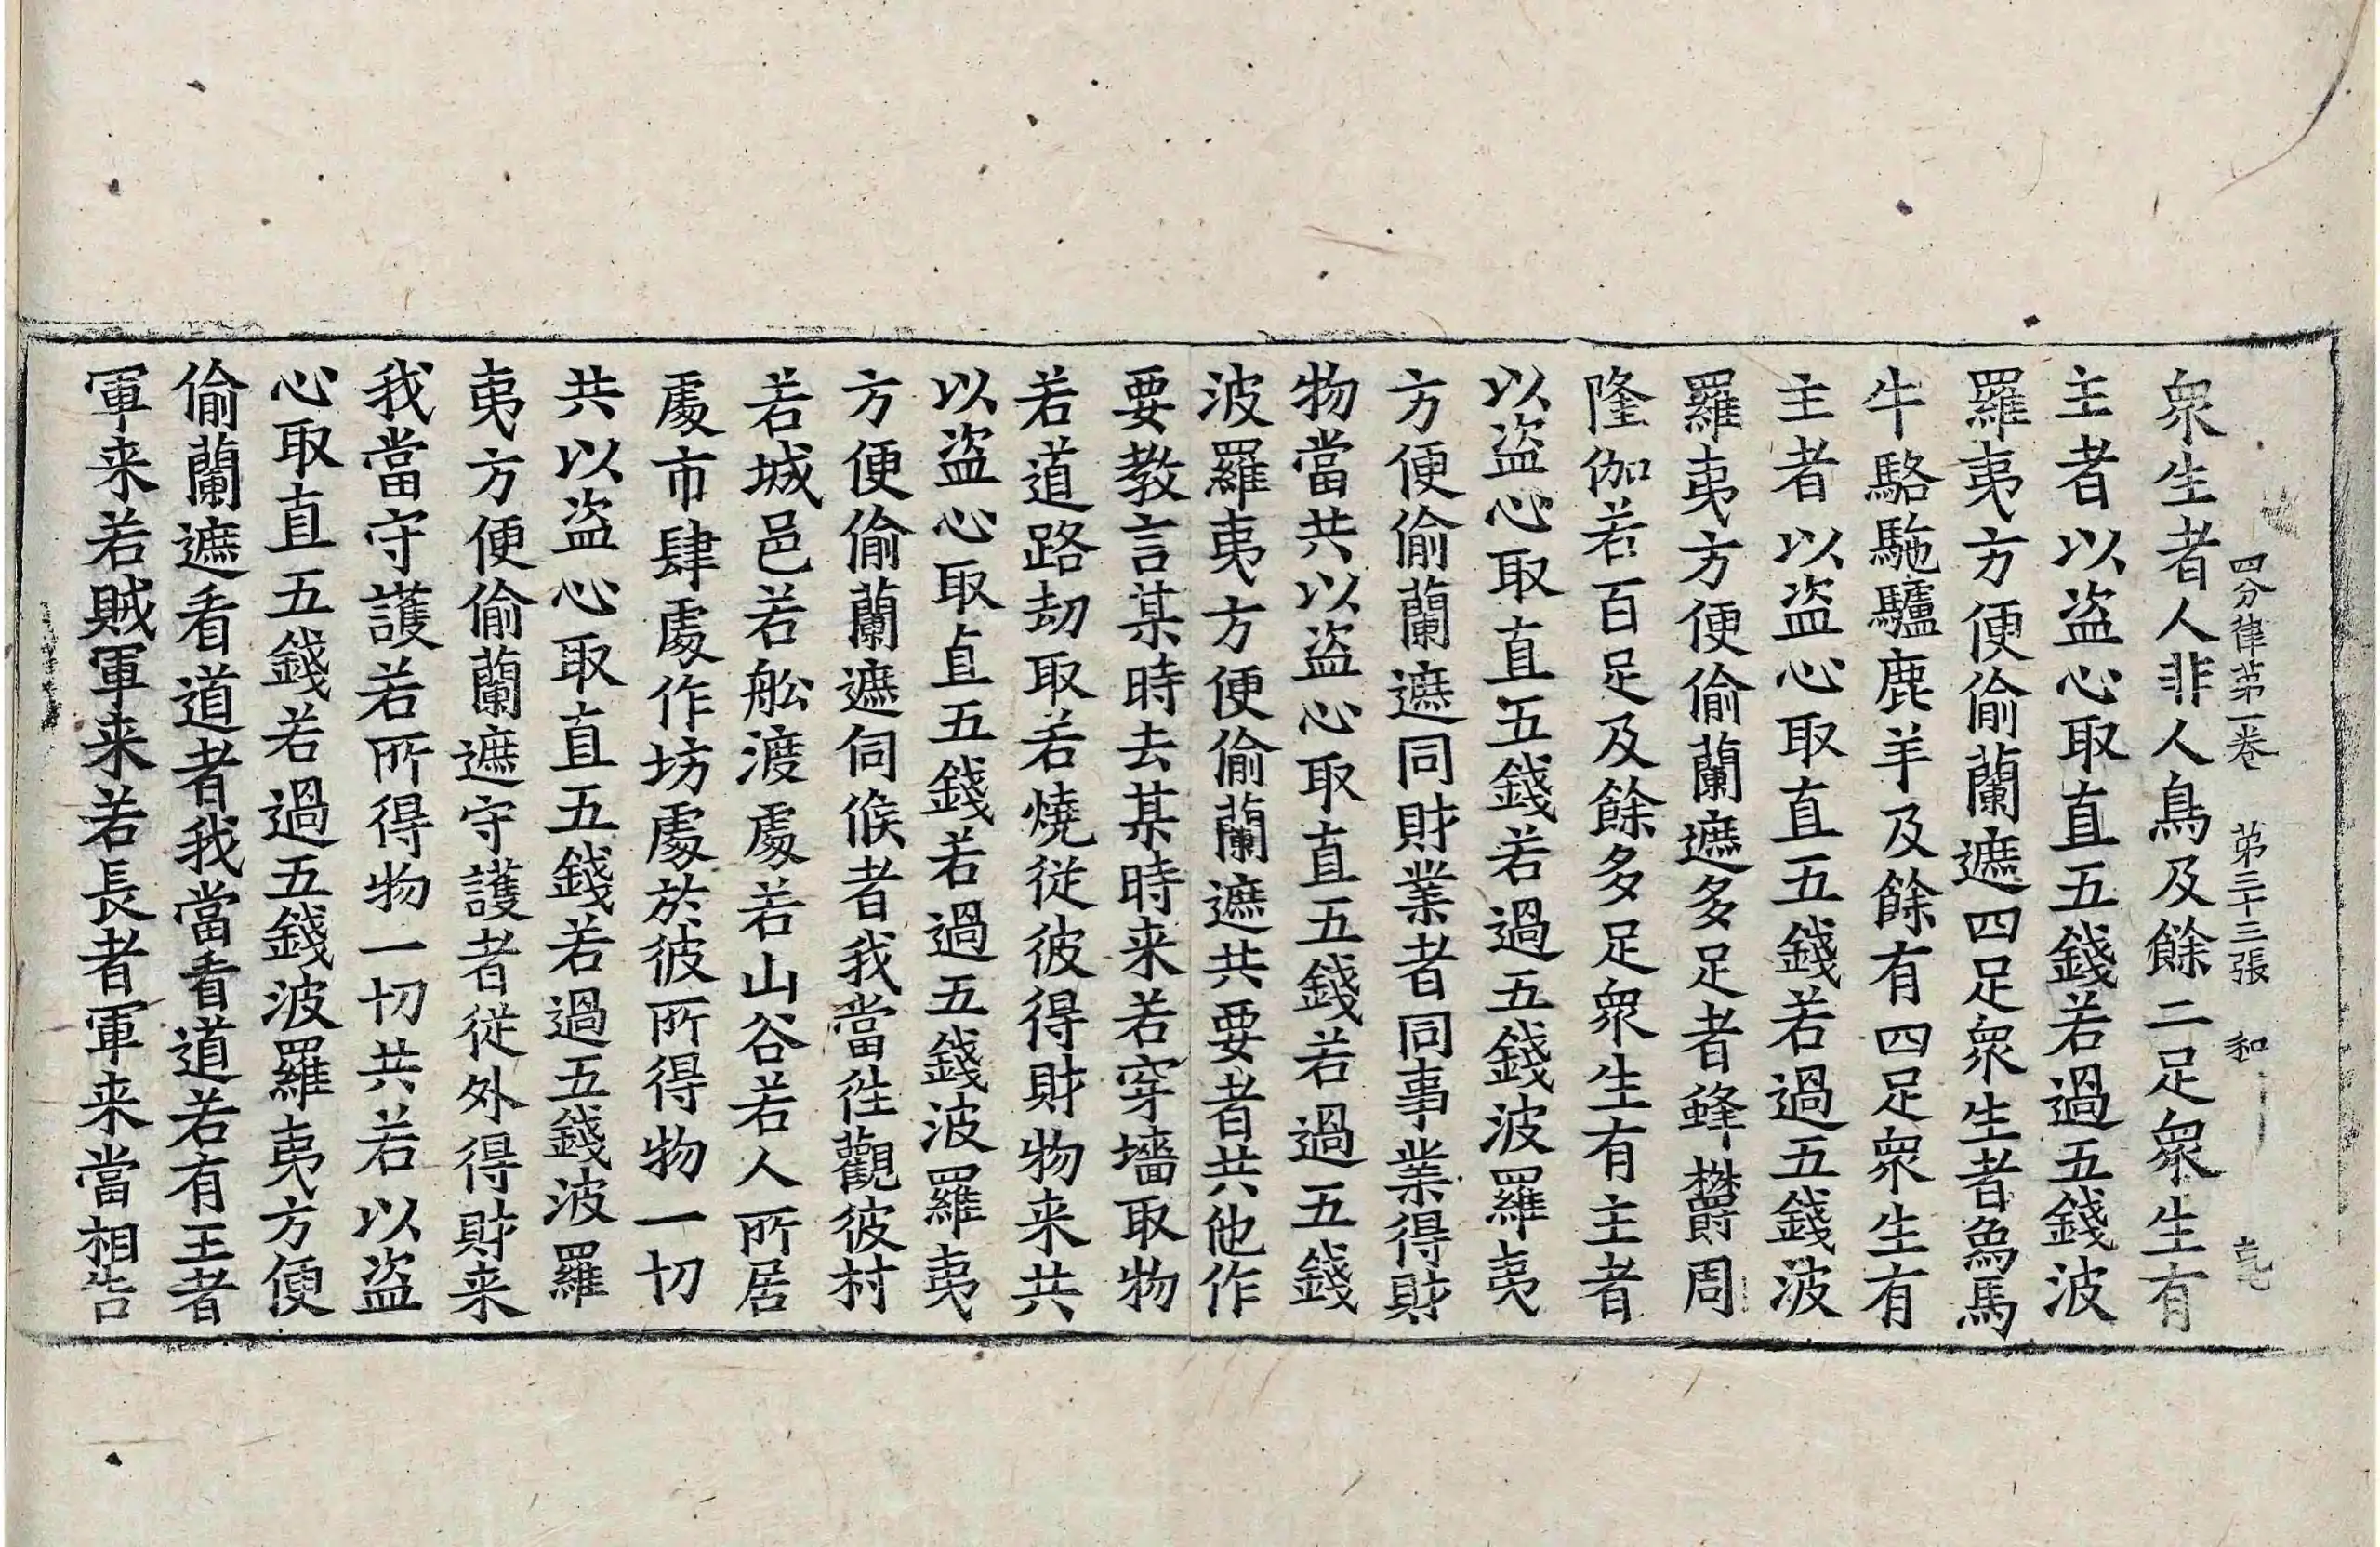 四分律苐一卷 苐三十三張 和
衆生者人非人鳥及餘二足衆生有
主者以盗心取直五錢若過五錢波
羅夷方便偷蘭遮四足衆生者象馬
牛駱駞驢鹿羊及餘有四足衆生有
主者以盗心取直五錢若過五錢波
羅夷方便偷蘭遮多足者蜂欝周
隆伽若百足及餘多足衆生有主者
以盗心取直五錢若過五錢波羅夷
方便偷蘭遮同財業者同事業得財
物當共以盗心取直五錢若過五錢
波羅夷方便偷蘭遮共要者共他作
要教言某時去某時来若穿墻取物
若道路劫取若燒従彼得財物来共
以盗心取直五錢若過五錢波羅夷
方便偷蘭遮伺候者我當徃觀彼村
若城邑若舩渡處若山谷若人所居
處市肆處作坊處於彼所得物一切
共以盗心取直五錢若過五錢波羅
夷方便偷蘭遮守護者従外得財来
我當守護若所得物一切共若以盗
心取直五錢若過五錢波羅夷方便
偷蘭遮看道者我當看道若有王者
軍来若賊軍来若長者軍来當相告